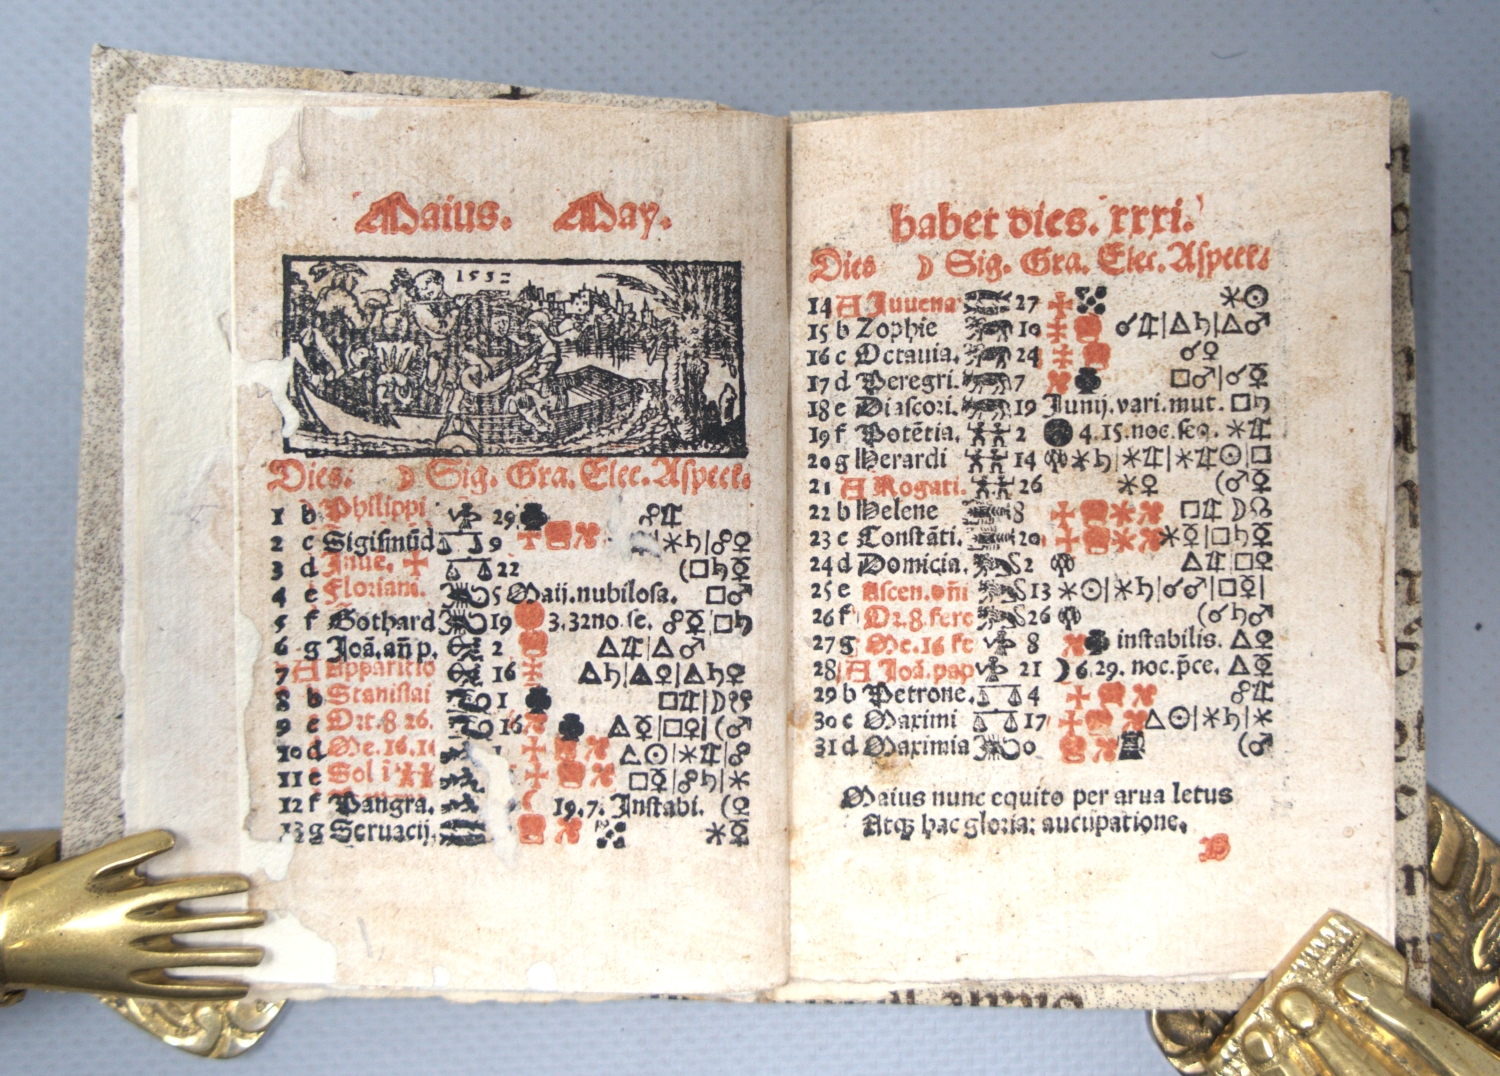 Maius. May.
1532
Dies. ☽ Sig. Gra. Elec. Aspect.
1 b Philippi 29 ☍♃
2 c Sigismūd 9 ✶♄|☍♀
3 d Inue. 22 (□♄☿
4 e Floriani. 5 Maij. nubilosa. □♂
5 f Gothard 19 3.32no.se. ☍☿|□♄
6 g Joā. añ p. 2 △♃|△♂
7 A Apparitio 16 △♄|△♀|△♄♀
8 b Stanislai 1 □♃|☽
9 c Ort. 8 26. 16 △☿|□♀|(♂
10 d Me. 16. 16 1 △☉|✶♃|☍
11 e Sol i □☿|☍♄|✶
12 f Pangra. 19.7. Instabi. (♀
13 g Seruacij. ✶♀
habet dies. xxxi.
Dies ☽ Sig. Gra. Elec. Aspect.
14 A Juuena 27 ✶☉
15 b Zophie 10 ☌♃|△♄|△♂
16 c Octauia. 24 ☌♀
17 d Peregri. 7 □♂|☌☿
18 e Diascori. 19 Junij. vari. mut. □♄
19 f Potētia. 2 4.15. noc. seq. ✶♃
20 g Herardi 14 ✶♄|✶♃|✶♃☉|□
21 A Rogati. 26 ✶♀ (♂☿
22 b Helene 8 □♃ ☽☊
23 c Constāti. 20 ✶☿|□♄☿
24 d Domicia. 2 △♃|□♀
25 e Ascen. oñi 13 ✶☉|✶♄|☌♂|□☿|
26 f Or. 8. fere 26 (☌♄♂
27 g Me. 16 fe 8 instabilis. △♀
28 A Joā. pap 21 ☽6.29. noc. p̄ce. △☿
29 b Petrone. 4 ☍♃
30 c Maximi 17 △☉|✶♄|✶
31 d Maximia 0 (♂
Maius nunc equito per arua letus
Atqꝫ hac gloria: aucupatione.
B